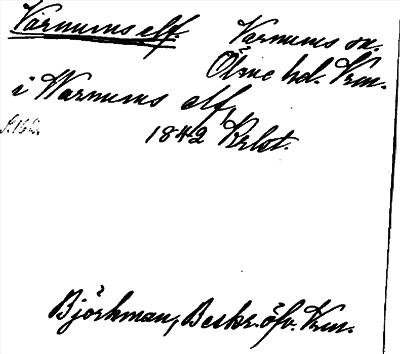 Varnums elf
Varnums sn.
Ölme hd. Vrm.
i Warnums elf,
s. 162.
1842 Krlst.
Björkman, Beskr. öfv. Vrm.